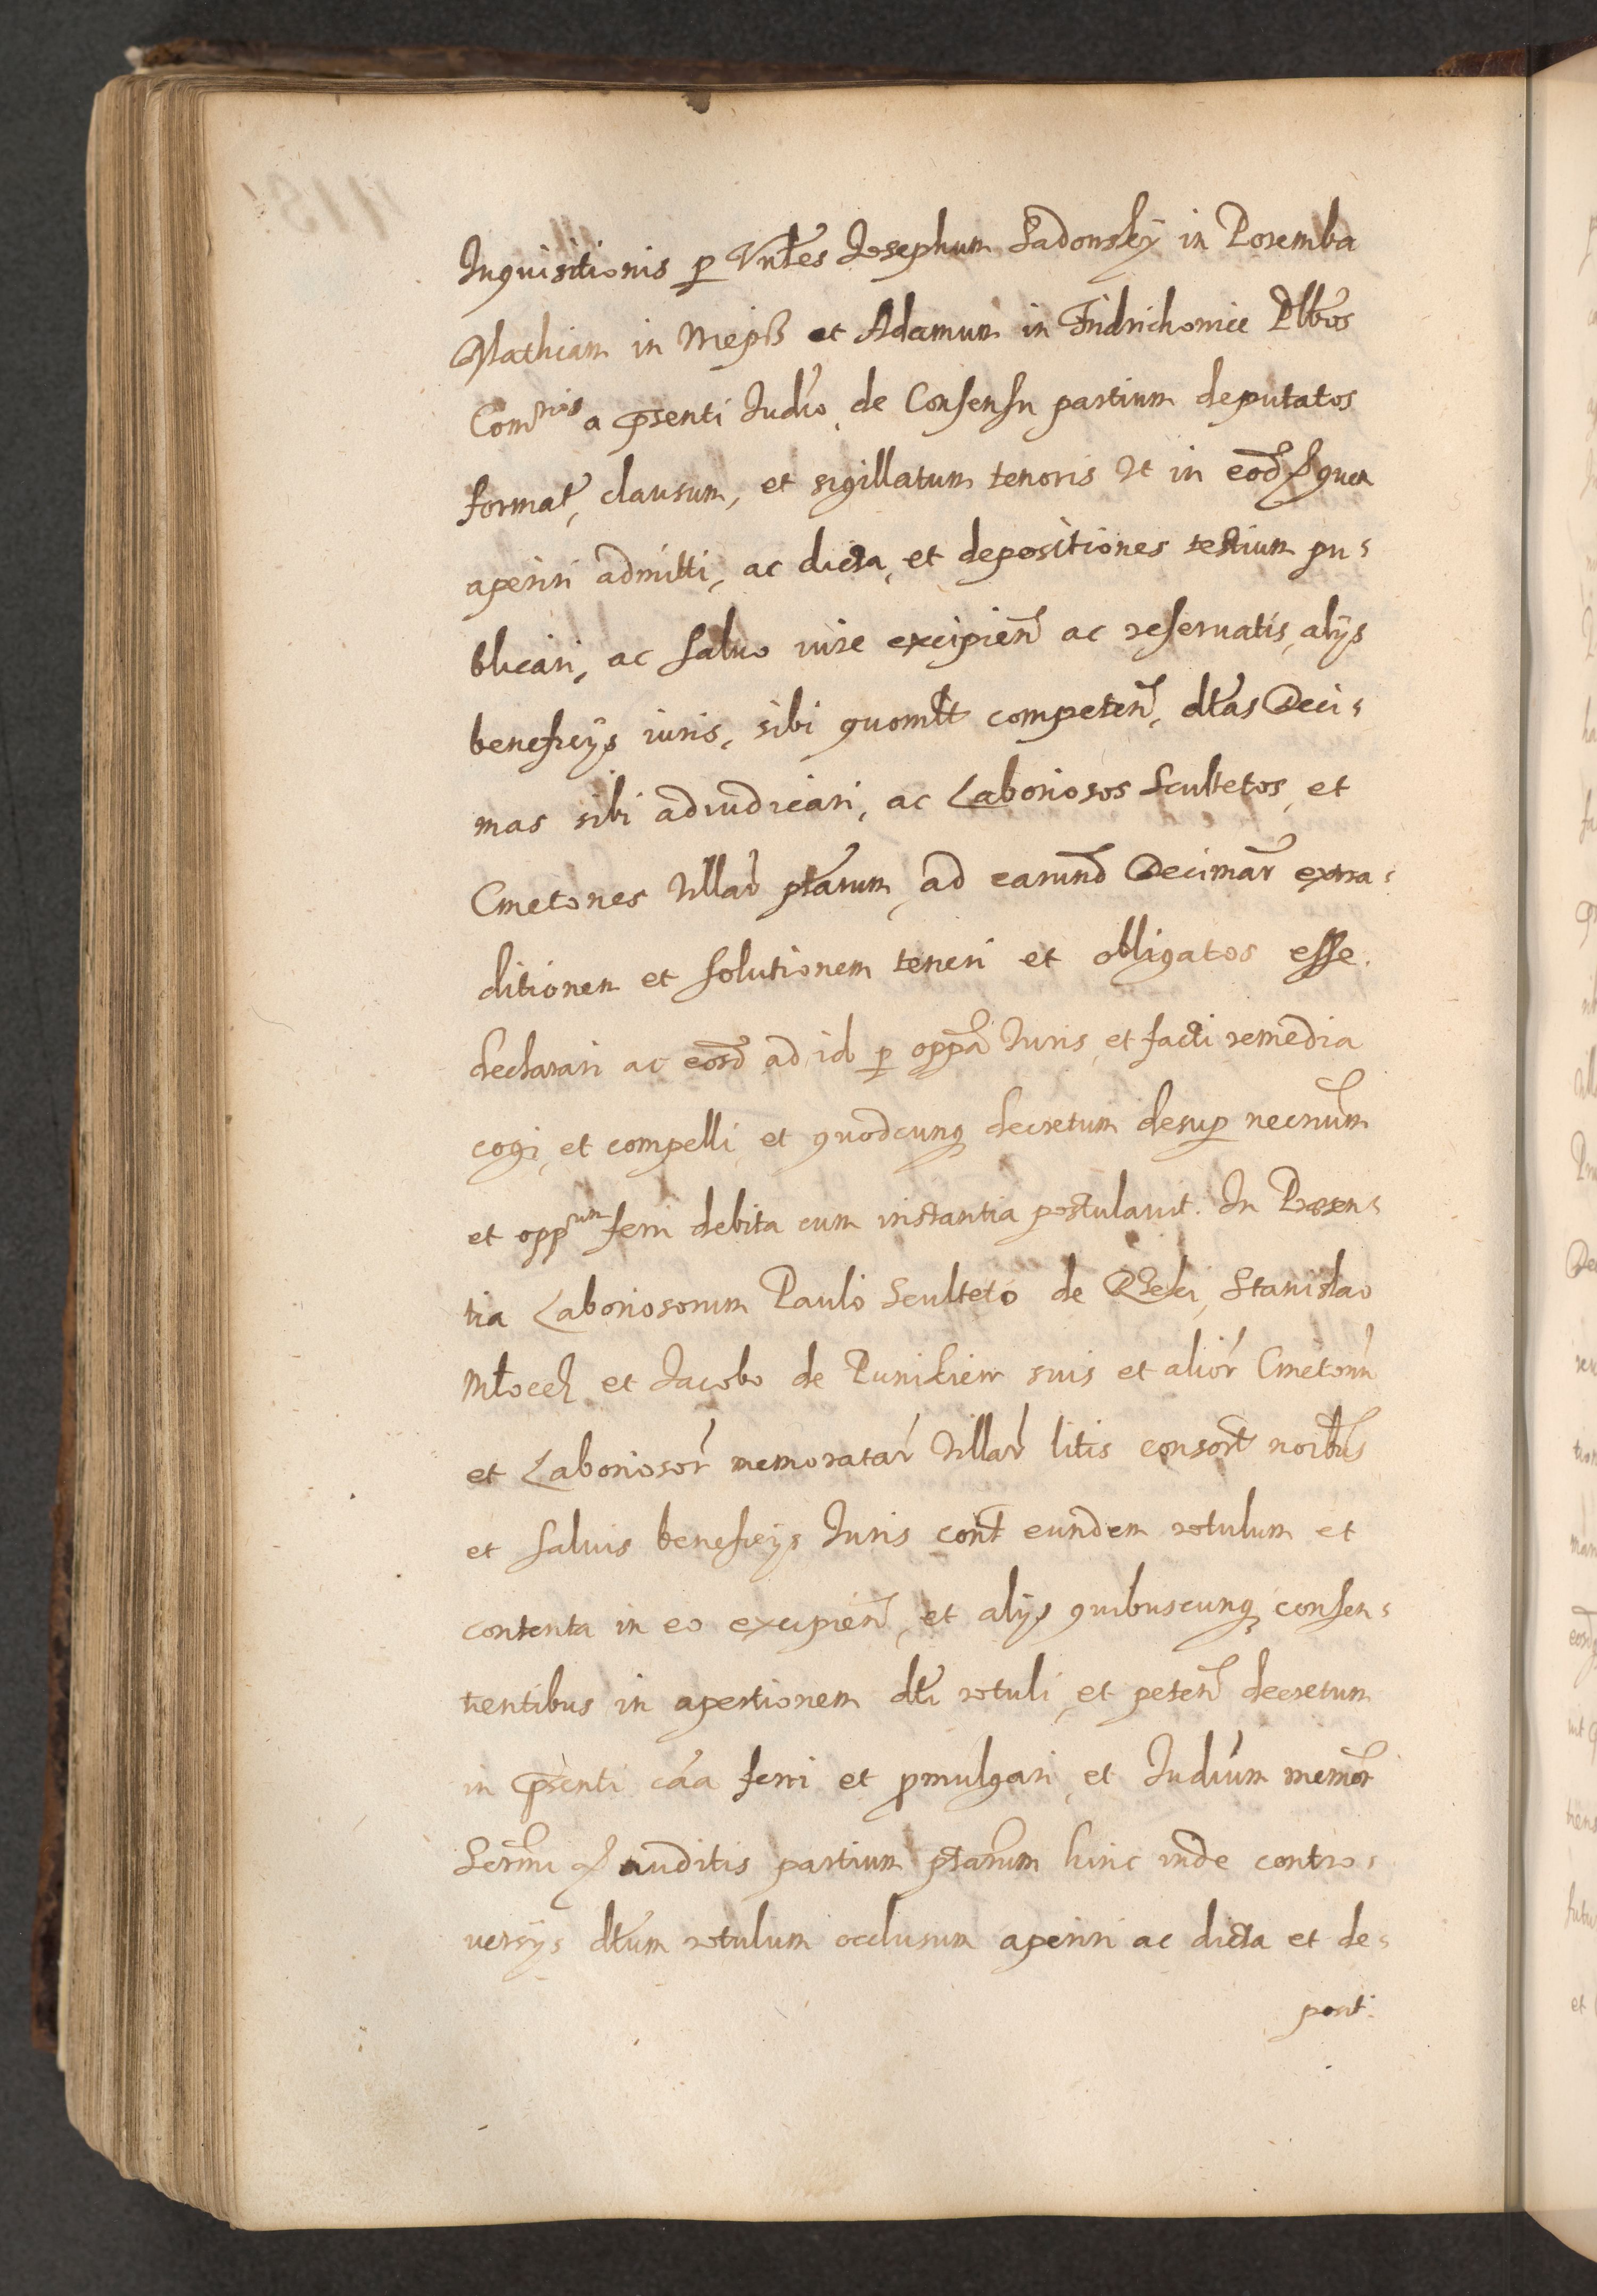 Inquisitionis p Vnbles Josephum Ladonsky in Poremba
Mathiam in Mepß et Adamum in Fridrichowice Plbos
Comrios a pńsenti Judio, de Consensu partium deputatos
format, clausum, et sigillatum tenoris Ut in eod aqua
aperiri admitti, ac dicta, et depositiones testium pu-
blicari, ac saluo iure excipien ac reseruatis, alijs
beneficijs iuris, sibi quomlt competen, dtas Deci-
mas sibi adiudicari, ac Laboriosos Scultetos, et
Cmetones Villar ptarum, ad earund Decimar extra-
ditionem et solutionem teneri et obligatos esse.
declarari ac eosd ad id p oppa Juris, et facti remedia
cogi, et compelli, et quodcunq decretum desup necrium
et oppnum ferri debita cum instantia postulauit. In Praesen-
tia Laboriosorum Paulo Sculteto de Rzeki, Stanislao
Młoceh et Jacobo de Punikiew suis et alior Cmetonu
et Laboriosor memoratar Villar litis consort noibus
et saluis beneficijs Juris cont eundem rotulum et
contenta in eo excipien, et alijs quibuscunq consen-
tientibus in apertionem dti rotuli, et peten decretum
in pńsenti caa ferri et pmulgari, et Judium memor
Sermi auditis partium ptarum hinc inde contro-
uersijs dtum rotulum occlusum aperiri ac dicta et de-
posit: